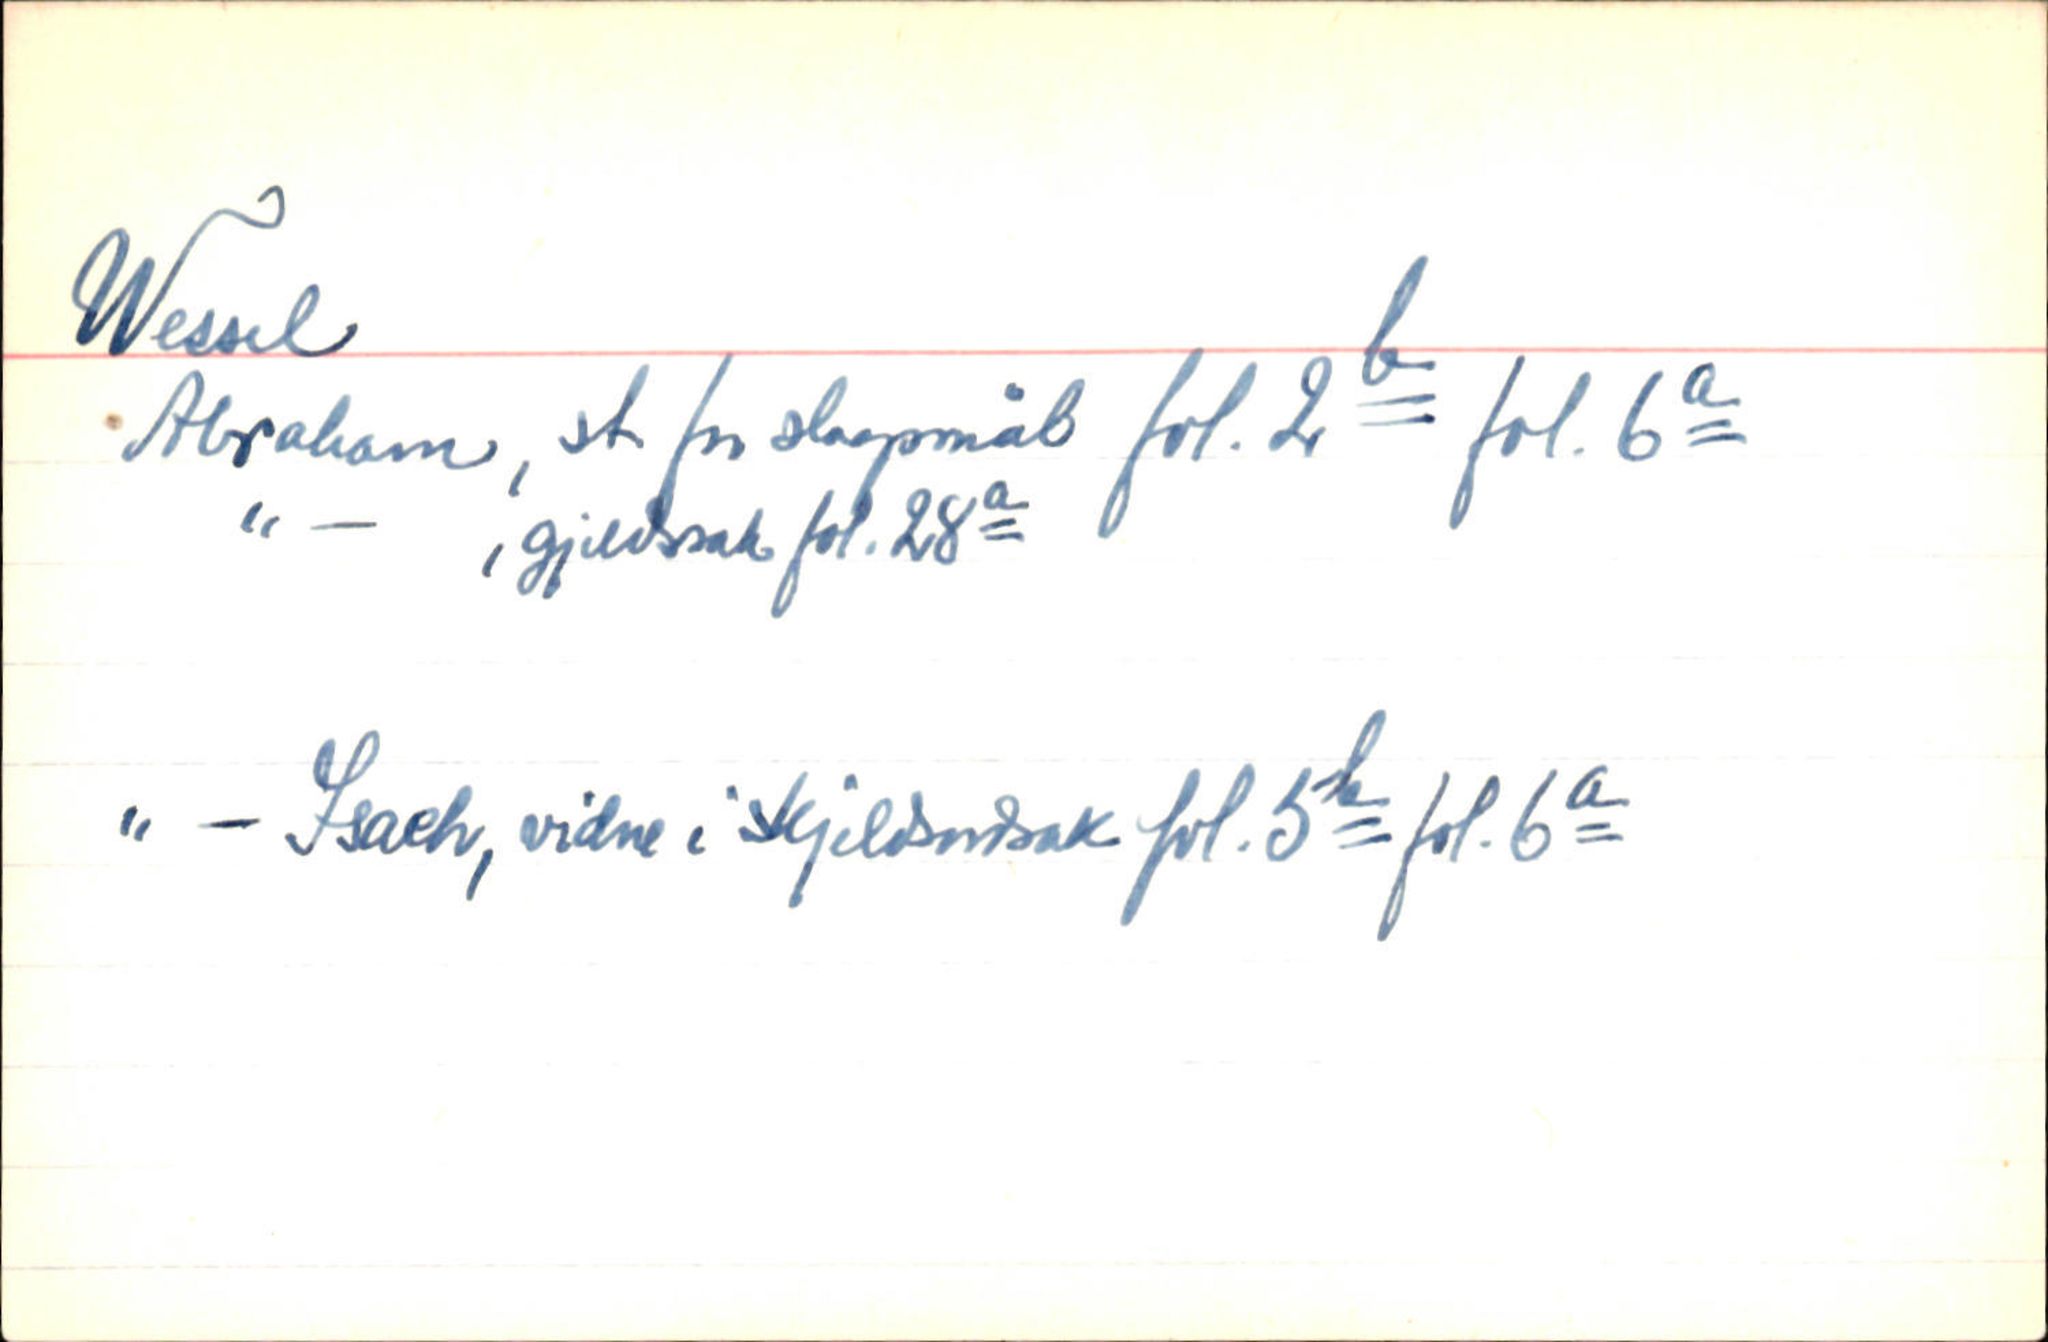 Wessel
Abraham, st. for slagsmål fol. 2b fol. 6a
" — , gjeldssak fol. 28a
" — Isach, vidne i skjeldsordsak fol. 5b fol. 6a